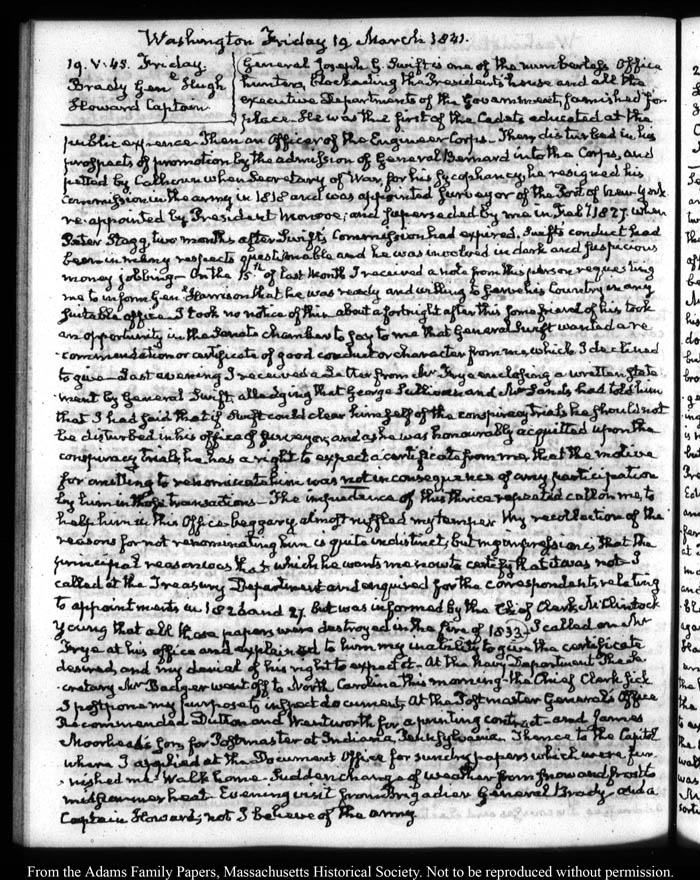 Washington Friday 19 March 1841.
19. V:45. Friday.
Brady Genl Hugh
Howard Captain
General Joseph G. Swift is one of the numberless Office
hunters, blockading the President's house and all the
executive Departments of the Government, famished for
place. He was the first of the Cadets educated at the
public expence. Then an Officer of the Engineer Corps. Then disturbed in his
prospects of promotion by the admission of General Bernard into the Corps, and
petted by Calhoun when Secretary of War, for his sycophancy he resigned his
Commission in the army in 1818 and was appointed Surveyor of the Port of New-York
re-appointed by President Monroe; and superseded by me in Feby 1827. when
Peter Stagg, two months after Swift's Commission had expired. Swift's conduct had
been in many respects questionable and he was involved in dark and suspicious
money jobbing— On the 15th of last Month I received a note from this person requesting
me to inform Genl Harrison that he was ready and willing to serve his Country in any
suitable office. I took no notice of this. about a fortnight after this some friend of his took
an opportunity in the Senate chamber to say to me that General Swift wanted a re-
commendation or certificate of good conduct or character from me, which I declined
to give— Last evening I received a Letter from Mr Frye enclosing a written state
ment by General Swift, alledging that George Sullivan and Mr Sands had told him
that I had said that if Swift could clear himself of the conspiracy trials he should not
be disturbed in his office of Surveyor, and as he was honourably acquitted upon the
conspiracy trials, he has a right to expect a certificate from me, that the motive
for omitting to renominate him was not in consequence of any participation
by him in those transactions— The impudence of this thrice repeated call on me, to
help him in this Office beggary, almost ruffled my temper. My recollection of the
reasons for not renominating him is quite indistinct, but my impression is, that the
principal reason was that which he wants me now to certify that it was not— I
called at the Treasury Department and enquired for the correspondents relating
to appointments in 1826 and 27. but was informed by the Chief Clerk McClintock
Young that all those papers were destroyed in the fire of 1833— I called on Mr
Frye at his office and explained to him my inability to give the certificate
desired, and my denial of his right to expect it— At the Navy Department the Se-
cretary Mr Badger went off to North Carolina this morning— the Chief Clerk sick
I postpone my purpose to inspect documents. At the Postmaster General's Office
Recommended Dutton and Wentworth for a printing contract— and James
Moorhead's son for Postmaster at Indiana, Pennsylvania. Thence to the Capitol
where I applied at the Document Office for sundry papers which were fur-
nished me. Walk home. Sudden change of weather from snow and frost to
midsummer heat. Evening visit from Brigadier General Brady— and a
Captain Howard; not I believe of the army
From the Adams Family Papers, Massachusetts Historical Society. Not to be reproduced without permission.